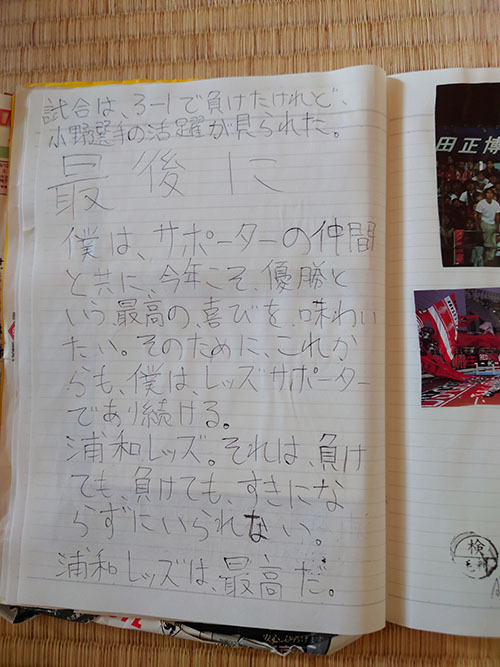 試合は、3-1で負けたけれど、
小野選手の活躍が見られた。
最後に
僕は、サポーターの仲間
と共に、今年こそ、優勝と
いう、最高の、喜びを、味わい
たい。そのために、これか
らも、僕は、レッズサポーター
であり続ける。
浦和レッズ。それは、負け
ても、負けても、すきにな
らずにいられない。
浦和レッズは、最高だ。
田正博
検